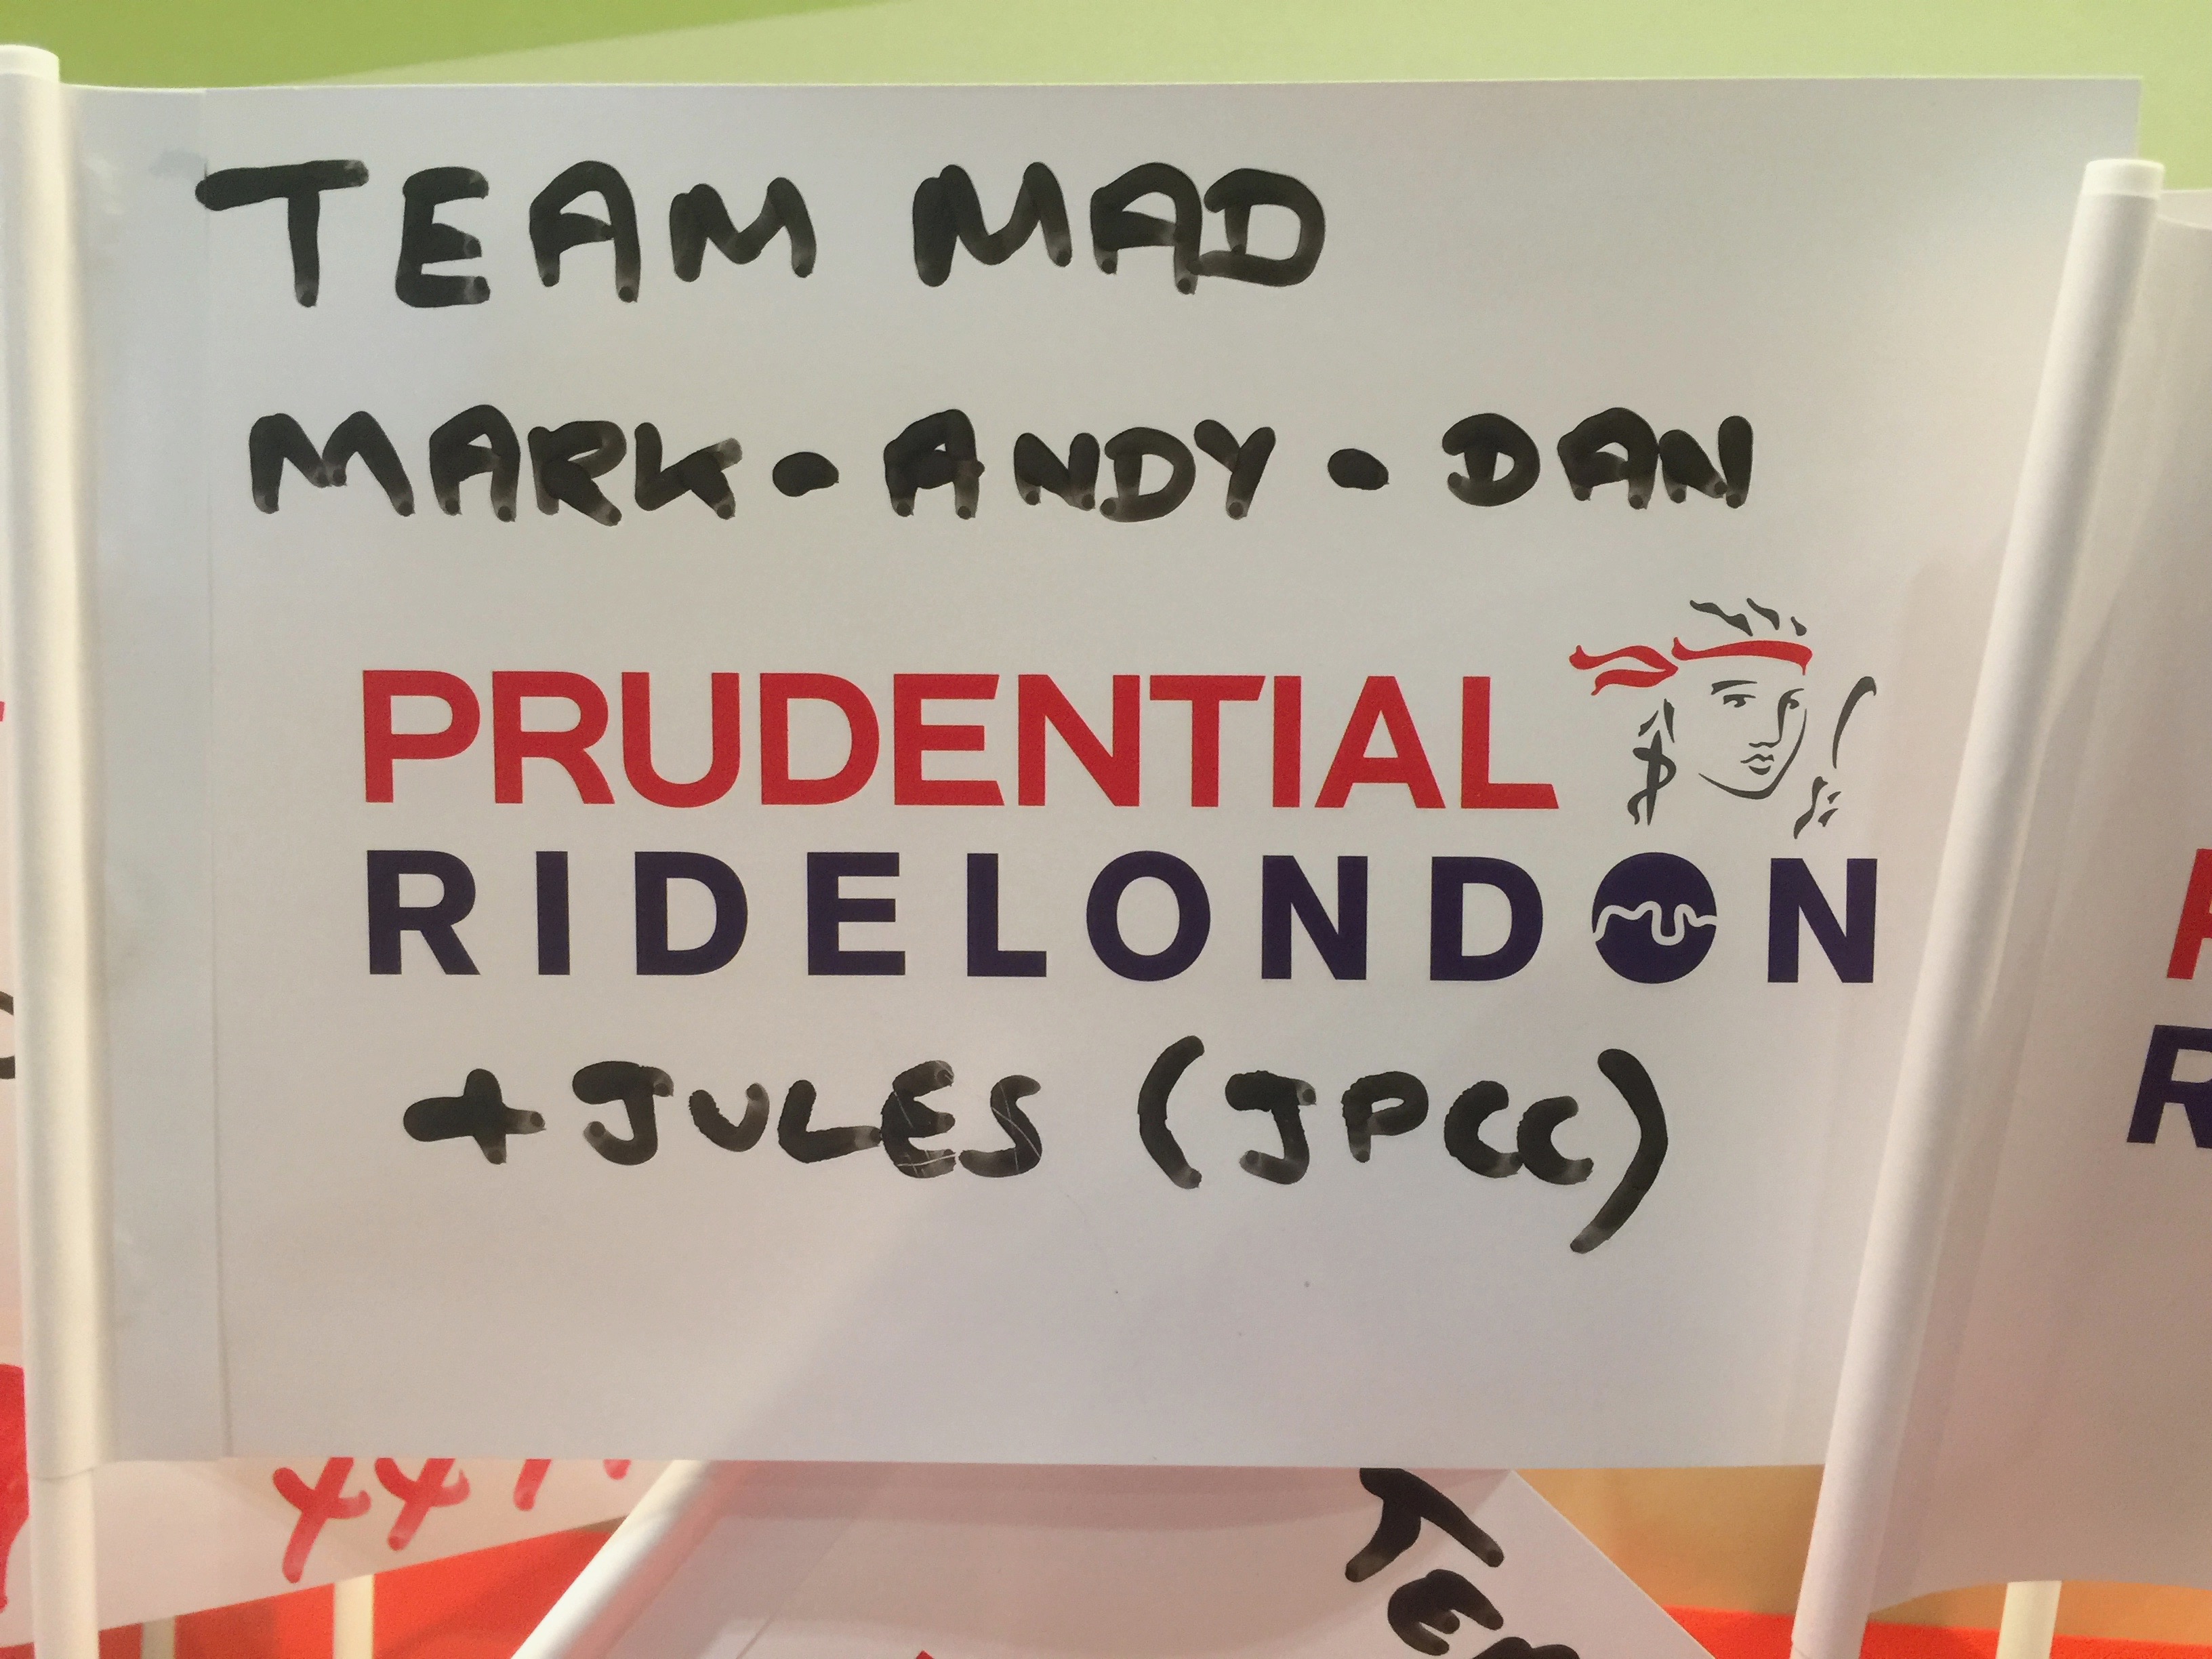 TEAM MAD
MARK • ANDY • DAN
PRUDENTIAL
RIDELONDON
+ JULES (JPCC)